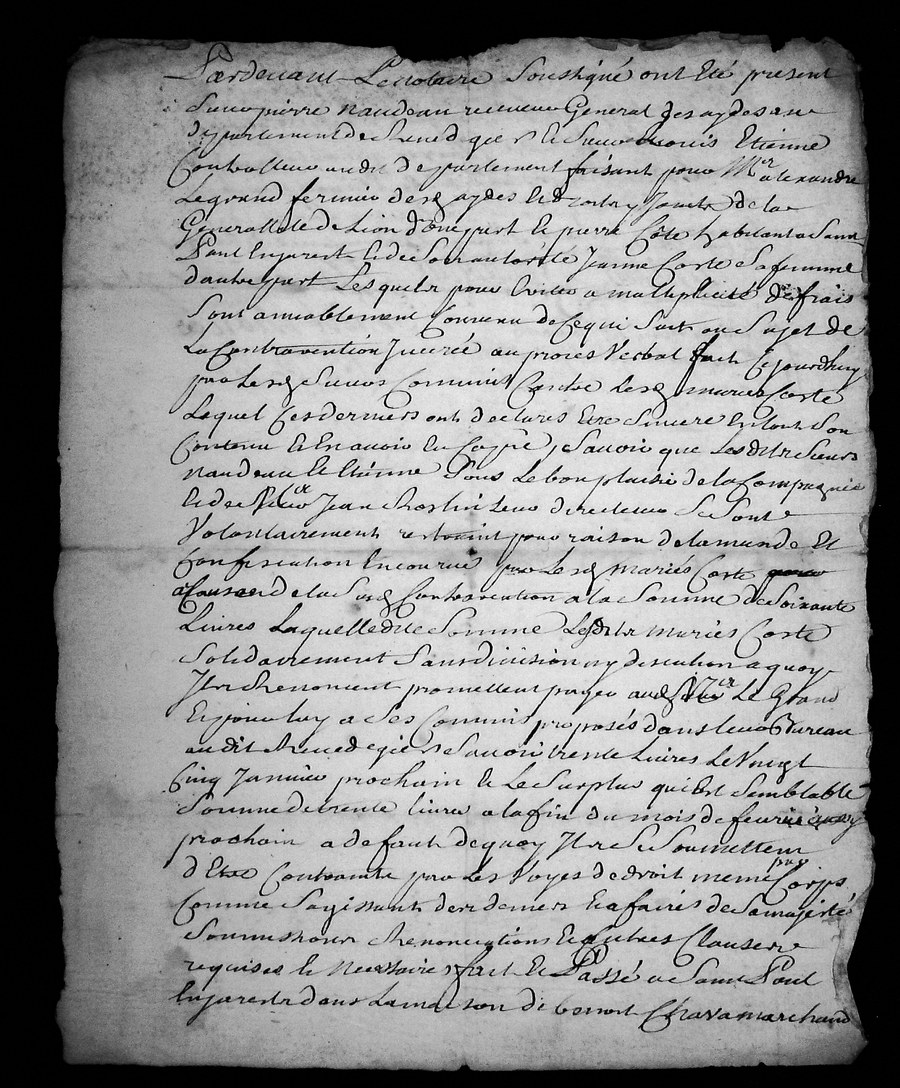 Pardevant Le notaire Soussigné ont Eté present
Sieur pierre naudeau receveur General des aydes au
departement de St rened et le Sieur Louis Etienne
Controlleur audit departement faisant pour Mr alexandre
Legrand fermier desd aydes et droits y Joints de la
Generallité de Lion d'une part Et pierre Coste habitant a Saint
Paul Enjarest Et de Son autorité Jeanne Coste Sa femme
dautre part Lesquels pour Eviter a multiplicité de frais
Sont amiablement Convenu de Ce qui Suit au Sujet de
La Contravention Jncerée au procès Verbal fait Cejourdhuy
par Lesd Sieurs Commis Contre Lesd mariés Coste
Lequel Ces derniers ont declarés Etre Sincere En tout Son
Contenu Et En avoir Eu Copie, Sçavoir que Lesdits Sieurs
naudeau Et Etienne Sous Le bon plaisir de la Compagnie
Et de Jean directeur Se Sont
Volontairement restraint pour raison de lamande Et
Confiscation Encourües par Lesd mariés Coste
a Cause de la Susd Contravention a la Somme de Soixante
Livres Laquelle dite Somme Lesdits mariés Coste
Solidairement Sans division ny discution a quoy
Jls Renoncent promettent payer aud Sieur Le Grand
Et pour luy a Ses Commis preposés dans leur Bureau
audit Sçavoir trente Livres Le Vingt
Cinq Janvier prochain Et Le Surplus qui Est Semblable
Somme de trente livres a la fin du mois de fevrier aussy
prochain a defaut de quoy Jls Se Soumettent
d'Etre Contraints par Les Voyes de droit meme par Corps
Comme S'agissant des deniers Et afaires de Sa majesté
Soumissions Renonciations Et autres Clauses
requises Et Necessaires fait Et Passé a Saint Paul
Enjarest dans La maison de benoit Chava marchand